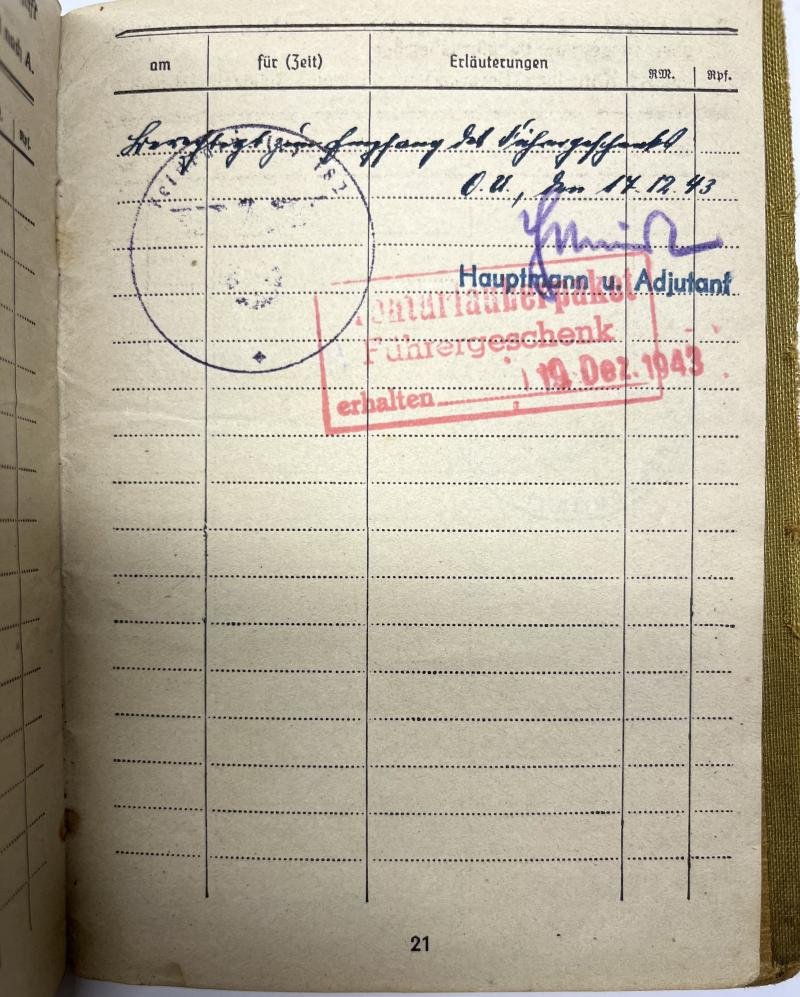 am für (Zeit) Erläuterungen RM. Rpf.
Berechtigt zum Empfang des Führergeschenks
O.U., den 17.12.43
Hauptmann u. Adjutant
Führergeschenk
erhalten 19. Dez. 1943
21
nach A.